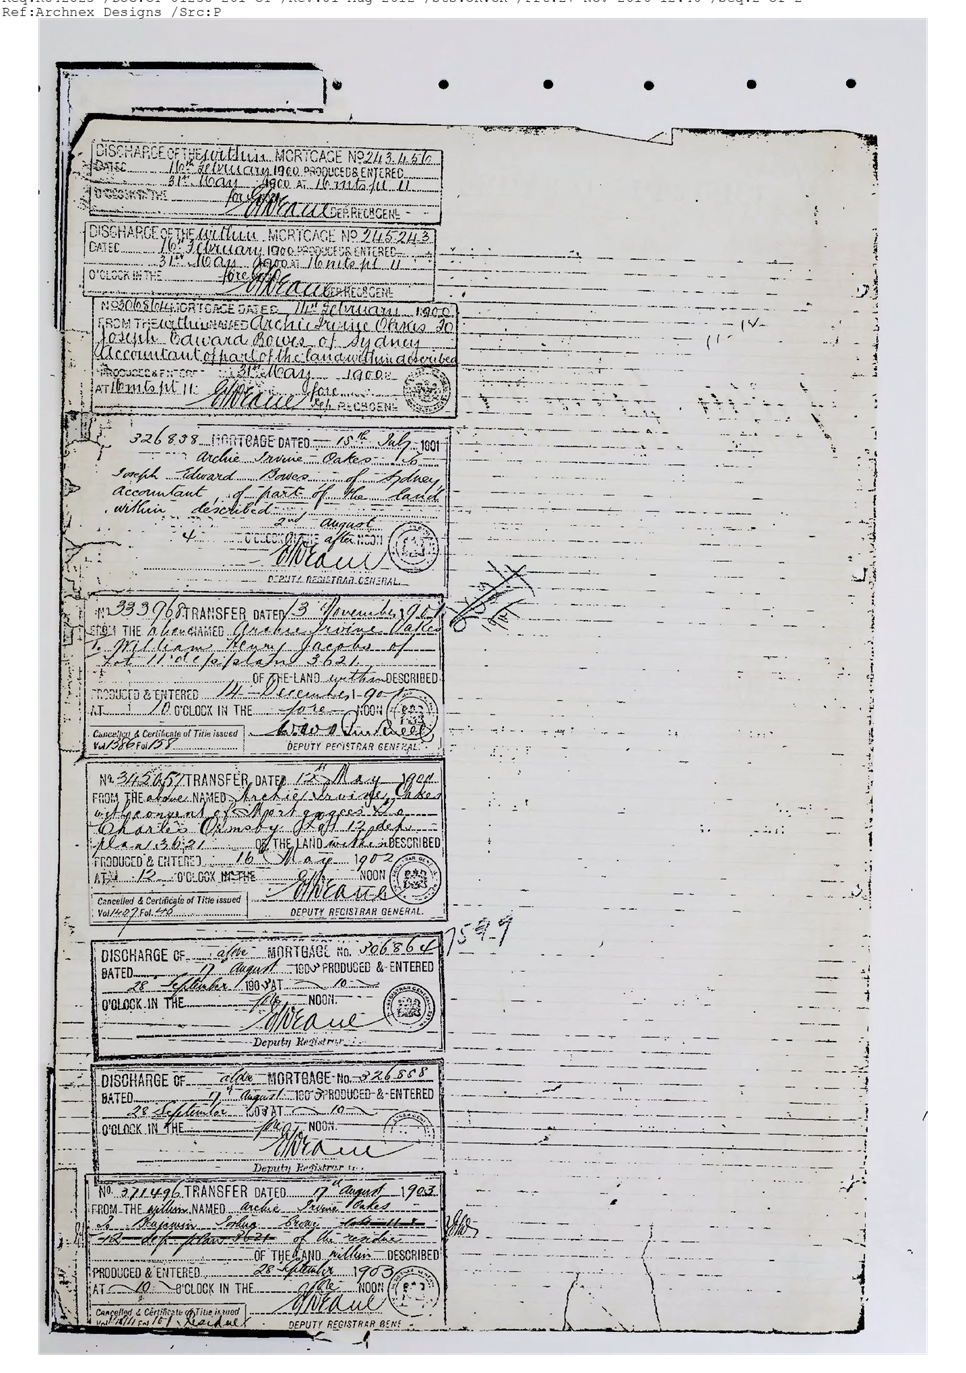 Ref:Archnex Designs /Src:P
DISCHARGE OF THE within MORTGAGE No 243456
DATED 16th February 1900 PRODUCED & ENTERED
31st May 1900 AT 16 mts pt 11
O'CLOCK IN THE forenoon
DEP. REG. GENL
DISCHARGE OF THE within MORTGAGE No 245243
DATED 16th February 1900 PRODUCED & ENTERED
31st May 1900 AT 16 mts pt 11
O'CLOCK IN THE forenoon
DEP REG GENL
No 306864 MORTGAGE DATED 14th February 1900
FROM THE within NAMED Archie Irvine Oakes to
Joseph Edward Bowes of Sydney
Accountant of part of the land within described
PRODUCED & ENTERED 31st May 1900
AT 16 mts pt 11 fore
Dep. REG GENL
326858 MORTGAGE DATED 15th July 1901
Archie Irvine Oakes to
Joseph Edward Bowes of Sydney
Accountant of part of the land
within described
2nd August
4 O'CLOCK IN THE after NOON
DEPUTY REGISTRAR GENERAL.
No 333968 TRANSFER DATED 13 November 1901
FROM THE above NAMED Archie Irvine Oakes
To William Henry Jacobs of
Lot 11 dep plan 3621
OF THE LAND within DESCRIBED
PRODUCED & ENTERED 14 December 1901
AT 10 O'CLOCK IN THE fore NOON
Cancelled & Certificate of Title issued
Vol 1386 Fol 158
DEPUTY REGISTRAR GENERAL.
No 345057 TRANSFER DATED 12th May 1902
FROM THE above NAMED Archie Irvine Oakes
with consent of Mortgagees to
Charles Ormsby Lot 12 dep
plan 3621 OF THE LAND within DESCRIBED
PRODUCED & ENTERED 16 May 1902
AT 12 O'CLOCK IN THE NOON
Cancelled & Certificate of Title issued
Vol 1407 Fol 40
DEPUTY REGISTRAR GENERAL.
DISCHARGE OF above MORTGAGE No. 306864
DATED 17 August 1903 PRODUCED & ENTERED
28 September 1903 AT 10
O'CLOCK IN THE fore NOON.
Deputy Registrar
DISCHARGE OF above MORTGAGE No. 326858
DATED 17th August 1903 PRODUCED & ENTERED
28 September 1903 AT 10
O'CLOCK IN THE fore NOON.
Deputy Registrar
No. 371496 TRANSFER DATED 17th August 1903
FROM THE within NAMED Archie Irvine Oakes
to Benjamin lots 11 &
12 dep plan 3621 of the residue
OF THE LAND within DESCRIBED
PRODUCED & ENTERED 28 September 1903
AT 10 O'CLOCK IN THE fore NOON
Cancelled & Certificate of Title issued
Residue
DEPUTY REGISTRAR GENE